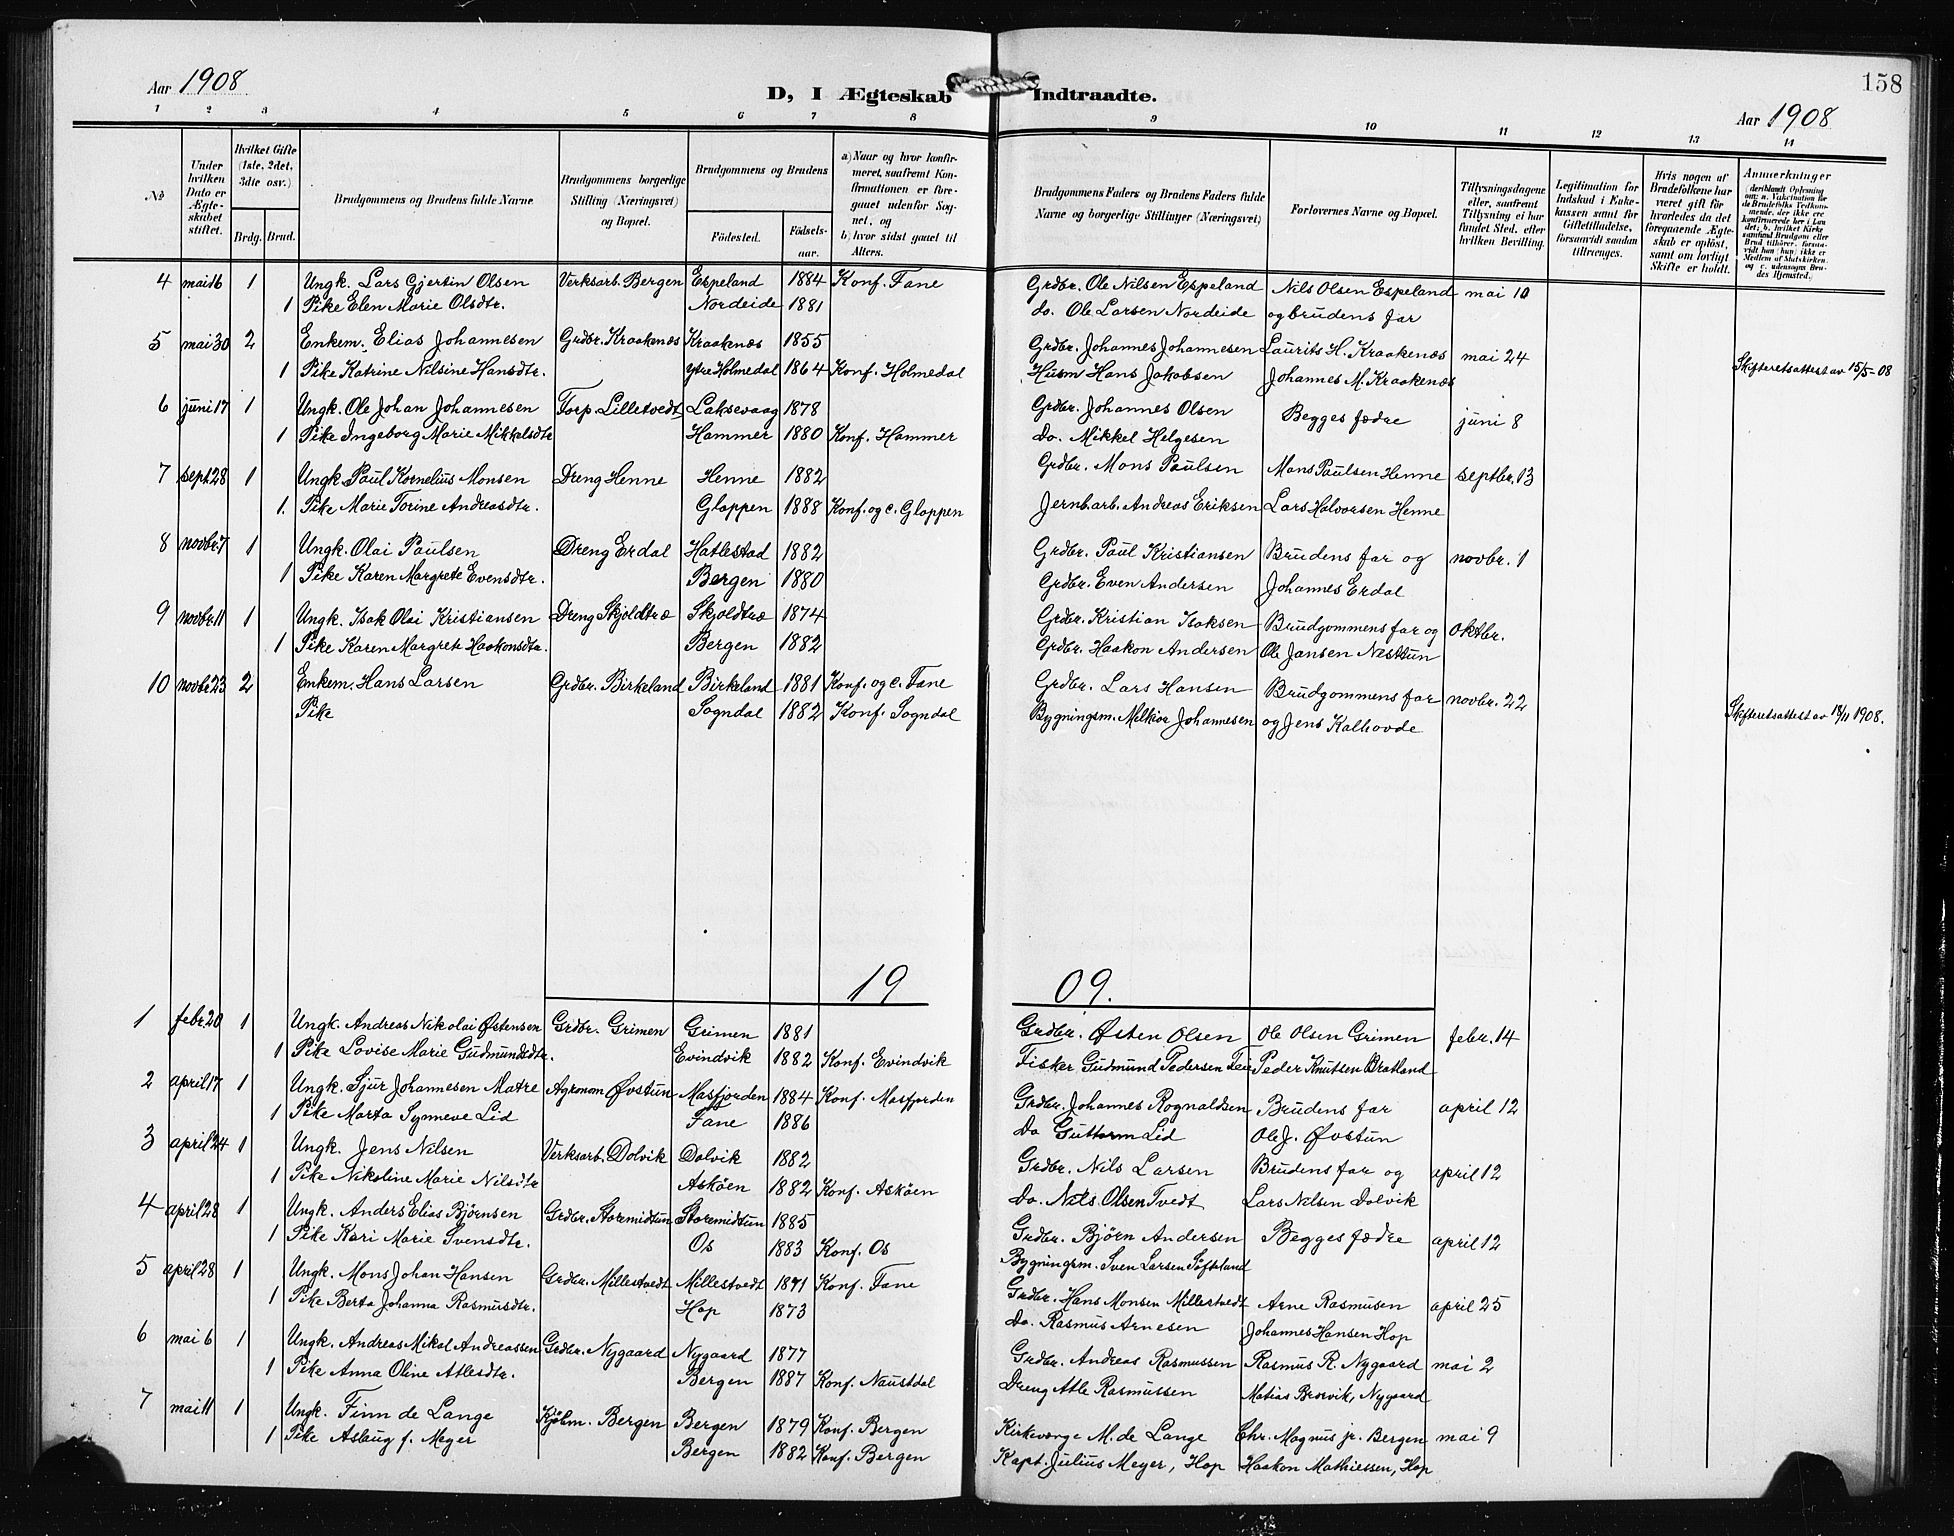 Aar 1908
D, I Ægteskab Indtraadte.
158
Aar 1908
1 2 3 4 5 6 7 8 9 10 11 12 13 14
No
Under hvilken Dato er Ægteskabet stiftet.
Hvilket Gifte (1ste, 2det, 3die osv.)
Brdg. Brud.
Brudgommens og Brudens fulde Navne
Brudgommens borgerlige Stilling (Næringsvei) og Bopæl.
Brudgommens og Brudens
Fødested. Fødselsaar.
a) Naar og hvor konfirmeret, saafremt Konfirmationen er foregaaet udenfor Sognet, og b) hvor sidst gaaet til Alters.
Brudgommens Faders og Brudens Faders fulde Navne og borgerlige Stillinger (Næringsvei)
Forlovernes Navne og Bopæl.
Tillysningsdagene eller, saafremt Tillysning ei har fundet Sted, efter hvilken Bevilling.
Legitimation for Indskud i Enkekassen samt for Giftetilladelse, forsaavidt saadan tiltrænges.
Hvis nogen af Brudefolkene har været gift før hvorledes da det foregaaende Ægteskab er opløst, samt om lovligt Skifte er holdt.
Anmærkninger
4 mai 16 1 Ungk. Lars Gjertin Olsen Verksarb. Bergen Espeland 1884 Konf. Fane Grdbr. Ole Nilsen Espeland Nils Olsen Espeland mai 10
1 Pike Elen Marie Olsdtr. Nordeide 1881 do. Ole Larsen Nordeide og brudens far
5 mai 30 2 Enkem. Elias Johannesen Grdbr. Kraakenæs Kraakenæs 1855 Grdbr. Johannes Johannesen Laurits H. Kraakenæs mai 24
1 Pike Katrine Nilsine Hansdtr. Ytre Holmedal 1864 Konf. Holmedal Husm Hans Jakobsen Johannes M. Kraakenæs Skifteretsattest av 15/5-08
6 juni 17 1 Ungk. Ole Johan Johannesen Torp. Lilletvedt Laksevaag 1878 Grdbr. Johannes Olsen Begges fædre juni 8
1 Pike Ingeborg Marie Mikkelsdtr Hammer 1880 Konf. Hammer Do. Mikkel Helgesen
7 sept 28 1 Ungk. Paul Kornelius Monsen Dreng Henne Henne 1882 Grdbr. Mons Paulsen Mons Paulsen Henne septbr. 13
1. Pike Marie Torine Andreasdtr. Gloppen 1888 Konf. og c. Gloppen Jernb.arb. Andreas Eriksen Lars Halvorsen Henne
8 novbr. 7 1 Ungk. Olai Paulsen Dreng Erdal Hatlestad 1882 Grdbr. Paul Kristiansen Brudens far og novbr. 1
1 Pike Karen Margrete Evensdtr. Bergen 1880 Grdbr. Even Andersen Johannes Erdal
9 novbr. 11 1 Ungk. Isak Olai Kristiansen Dreng Skjoldtræ Skjoldtræ 1874 Grdbr. Kristian Isaksen Brudgommens far og oktbr.
1 Pike Karen Margrete Haakonsdtr. Bergen 1882 Grdbr. Haakon Andersen Ole Jansen Nesttun
10 novbr 23 2 Enkem. Hans Larsen Grdbr. Birkeland Birkeland 1881 Konf. og c. Fane Grdbr. Lars Hansen Brudgommens far novbr. 22
Pike Sogndal 1882 Konf. Sogndal Bygningsm. Melkior Johannesen og Jens Kalhovde Skifteretsattest av 18/11 1908.
19 09.
1 febr. 20 1 Ungk. Andreas Nikolai Østensen Grdbr. Grimen Grimen 1881 Grdbr. Østen Olsen Ole Olsen Grimen febr. 14
1 Pike Lovise Marie Gudmundsdtr. Evindvik 1882 Konf. Evindvik Fisker Gudmund Pedersen Peder Knutsen Bratland
2 april 17 1 Ungk. Sjur Johannesen Matre Agronom Øvstun Masfjorden 1884 Konf. Masfjorden Grdbr. Johannes Rognaldsen Brudens far april 12
1 Pike Marta Synneve Lid Fane 1886 Do Guttorm Lid Ole J. Øvstun
3 april 24 1 Ungk. Jens Nilsen Verksarb. Dolvik Dolvik 1882 Grdbr. Nils Larsen Brudens far og april 12
1 Pike Nikoline Marie Nilsdtr Askøen 1882 Konf. Askøen Do. Nils Olsen Tvedt Lars Nilsen Dolvik
4 april 28 1 Ungk. Anders Elias Bjørnsen Grdbr. Storemidtun Storemidtun 1885 Grdbr. Bjørn Andersen Begges fædre april 12
1 Pike Kari Marie Svensdtr. Os 1883 Konf. Os Bygningsm. Sven Larsen Søfteland
5 april 28 1 Ungk. Mons Johan Hansen Grdbr. Millestvedt Millestvedt 1871 Konf. Fane Grdbr. Hans Monsen Millestvedt Arne Rasmusen april 25
1 Pike Berta Johanna Rasmusdtr. Hop 1873 Do. Rasmus Arnesen Johannes Hansen Hop
6 mai 6 1 Ungk. Andreas Mikal Andreassen Grdbr. Nygaard Nygaard 1877 Grdbr. Andreas Rasmussen Rasmus R. Nygaard mai 2
1 Pike Anna Oline Atlesdtr. Bergen 1887 Konf. Naustdal Dreng Atle Rasmussen Matias Brosvik, Nygaard
7 mai 11 1 Ungk. Finn de Lange Kjøbm. Bergen Bergen 1879 Konf. Bergen Kirkeverge M. de Lange Chr. Magnus jr. Bergen mai 9
1 Pike Aslaug f. Meyer Bergen 1882 Konf. Bergen Kapt. Julius Meyer, Hop Haakon Mathiessen, Hop